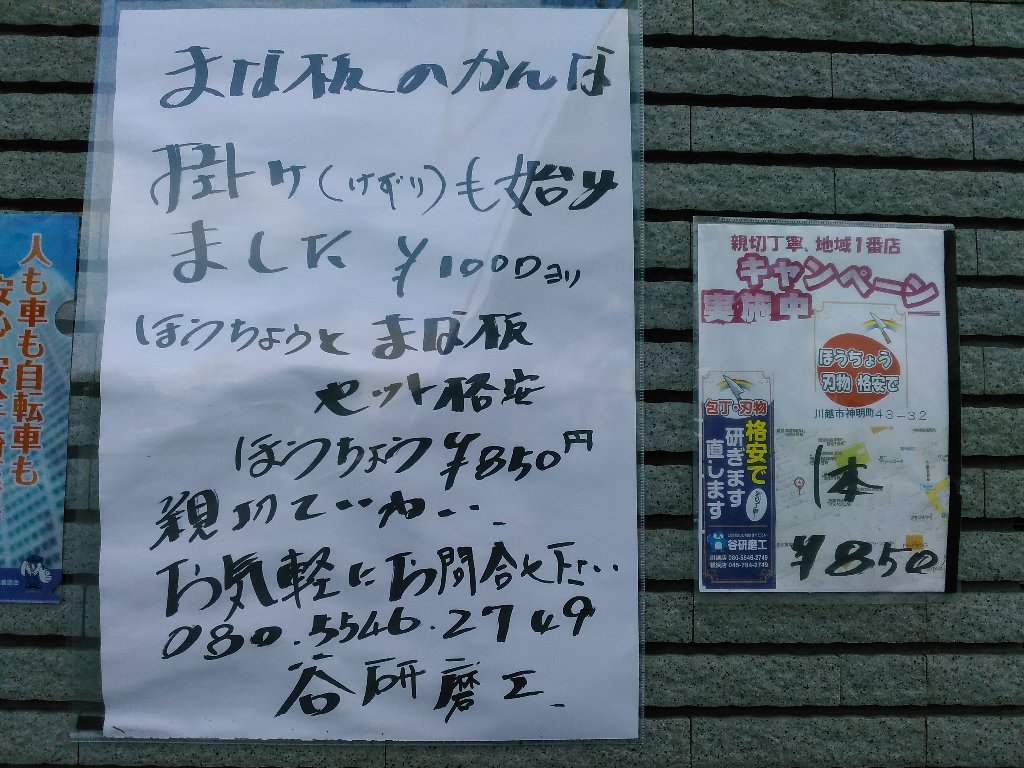 まな板のかんな
掛け(けずり)も始め
ました ¥1000ヨリ
ほうちょうと まな板
セット格安
ほうちょう¥850円
親切ていねい、
お気軽にお問合せ下さい
080.5546.2749
谷研磨工
人も車も自転車も
親切丁寧、地域1番店
キャンペーン
実施中
ほうちょう
刃物 格安で
川越市神明町43-32
包丁・刃物
格安で
研ぎます
直します
谷研磨工
080-5546-2749
1本
¥850